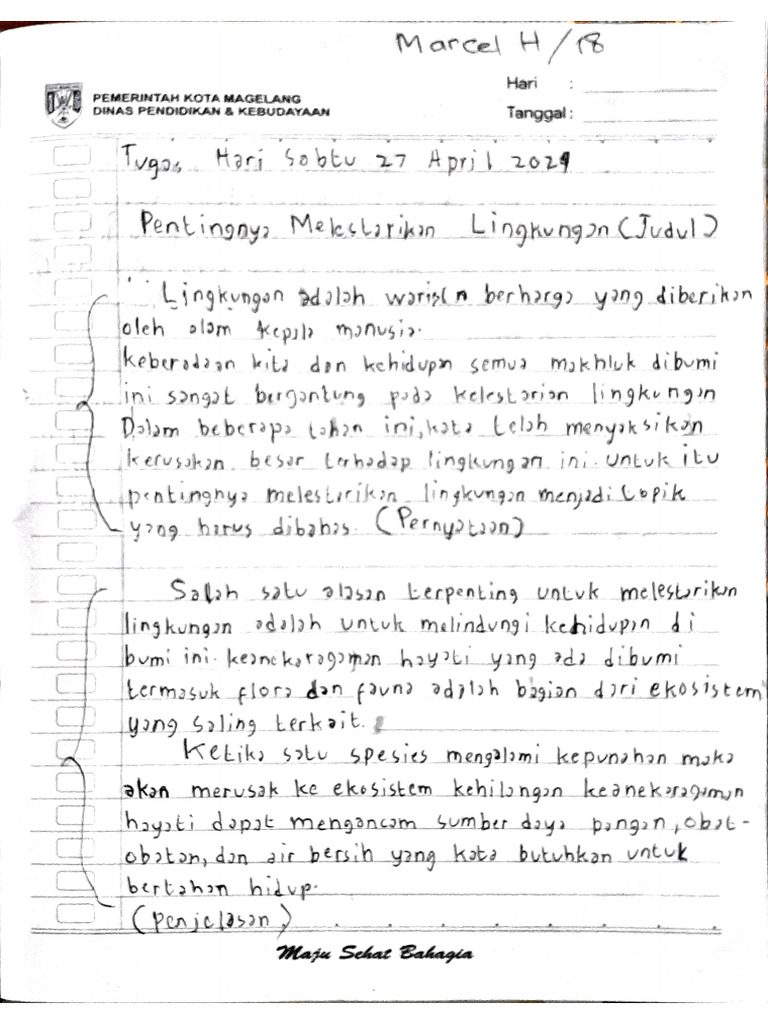 Marcel H / 18
PEMERINTAH KOTA MAGELANG
DINAS PENDIDIKAN & KEBUDAYAAN
Hari :
Tanggal :
Tugas Hari Sabtu 27 April 2024
Pentingnya Melestarikan Lingkungan (Judul)
Lingkungan adalah berharga yang diberikan
oleh alam kepala manusia.
keberadaan kita dan kehidupan semua makhluk dibumi
ini sangat bergantung pada kelestarian lingkungan
Dalam beberapa tahan ini, kata telah menyaksikan
kerusakan besar terhadap lingkungan ini. Untuk itu
pentingnya melestarikan lingkungan menjadi topik
yang harus dibahas. (Pernyataan)
Salah satu alasan terpenting untuk melestarikan
lingkungan adalah untuk melindungi kehidupan di
bumi ini. keanekaragaman hayati yang ada dibumi
termasuk flora dan fauna adalah bagian dari ekosistem
yang saling terkait.
Ketika satu spesies mengalami kepunahan maka
akan merusak ke ekosistem kehilangan keanekaragaman
hayati dapat mengancam sumber daya pangan, obat-
obatan, dan air bersih yang kata butuhkan untuk
bertahan hidup.
(Penjelasan)
Maju Sehat Bahagia